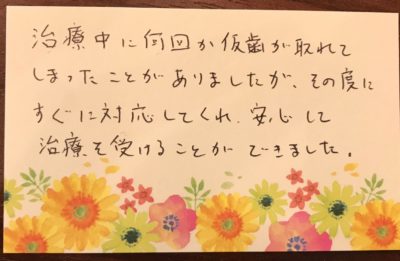 治療中に何回か仮歯が取れて
しまったことがありましたが、その度に
すぐに対応してくれ、安心して
治療を受けることができました。